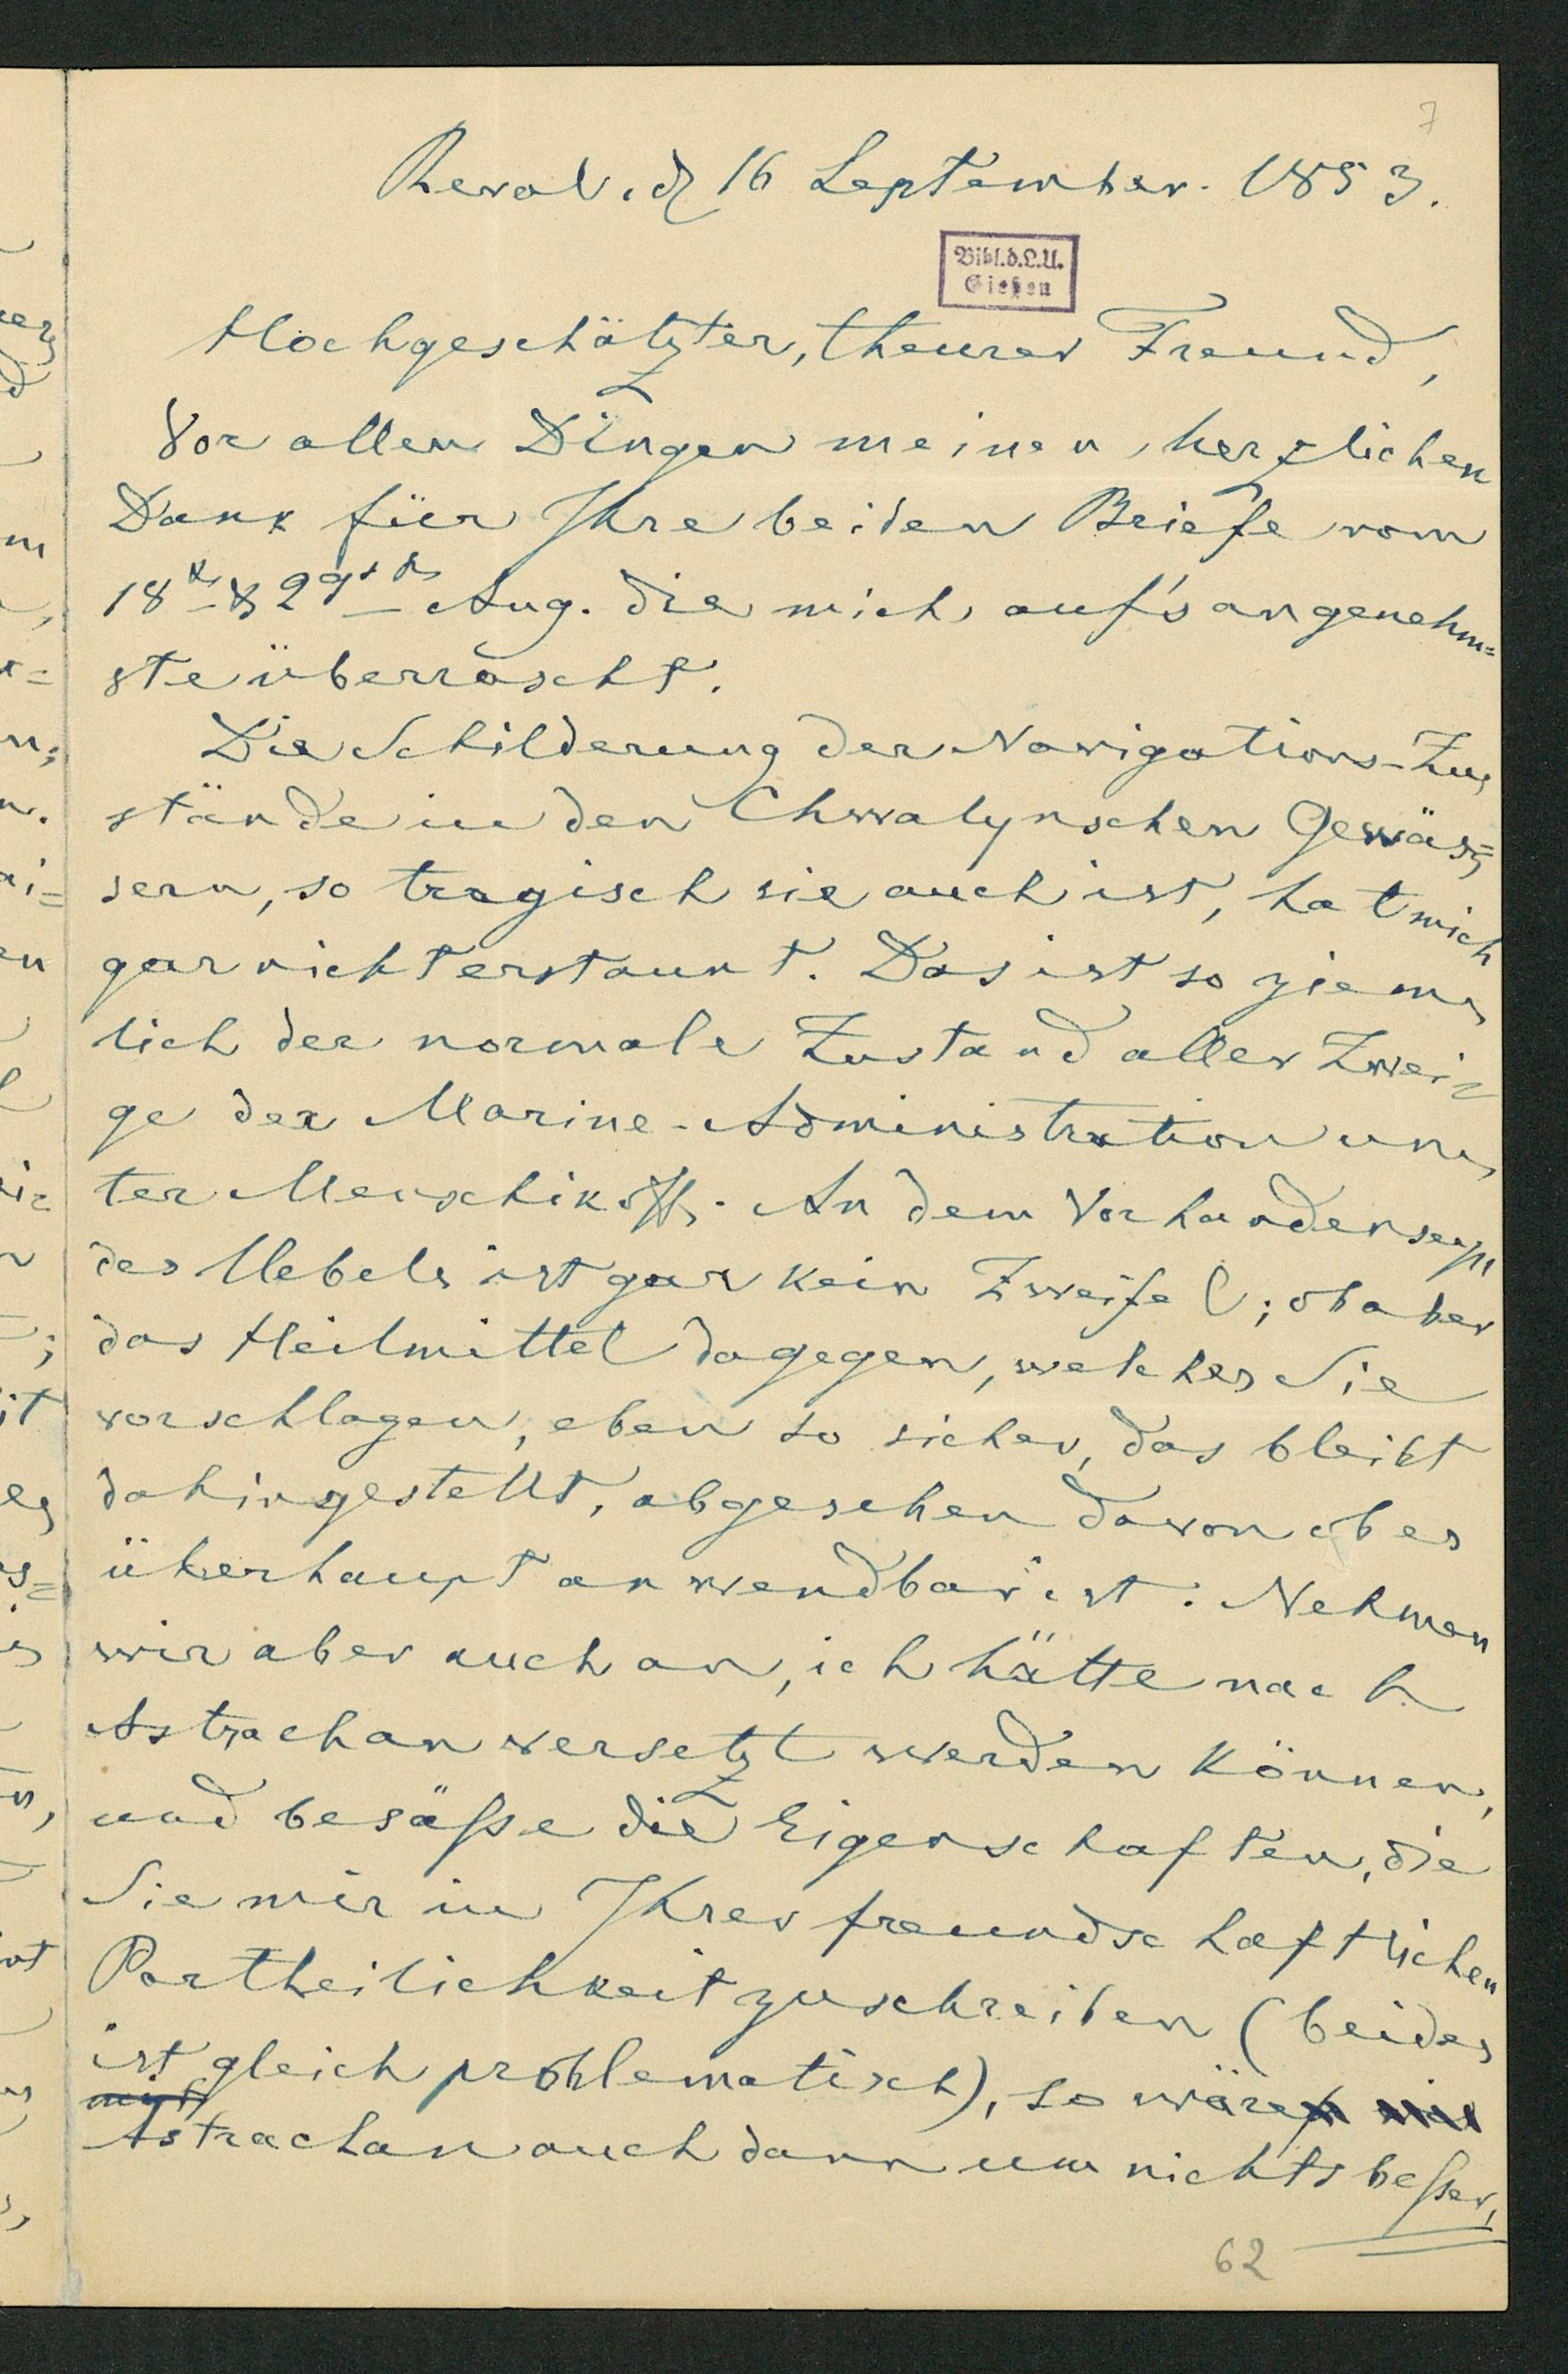 7
Reval. d 16 September. 1853.
Bibl.d.L.U.
Gießen
Hochgeschätzter, theurer Freund,
Vor allen Dingen meinen herzlichen
Dank für Ihre beiden Briefe vom
18t & 29st Aug. die mich auf's angenehm=
ste überrascht.
Die Schilderung der Navigations-Zu=
stände in den Chwalynschen Gewäs=
sern, so tragisch sie auch ist, hat mich
gar nicht erstaunt. Das ist so ziem=
lich der normale Zustand aller Zwei=
ge der Marine-Administration un=
ter Menschikoff. An dem Vorhandenseyn
des Uebels ist gar kein Zweifel; ob aber
das Heilmittel dagegen, welches Sie
vorschlagen, eben so sicher, das bleibt
dahingestellt, abgesehen davon ob es
überhaupt anwendbar ist. Nehmen
wir aber auch an, ich hätte nach
Astrachan versetzt werden können,
und besäße die Eigenschaften, die
Sie mir in Ihrer freundschaftlichen
Partheilichkeit zuschreiben (beides
ist gleich problematisch), so wäre
Astrachan auch dann um nichts beßer,
62